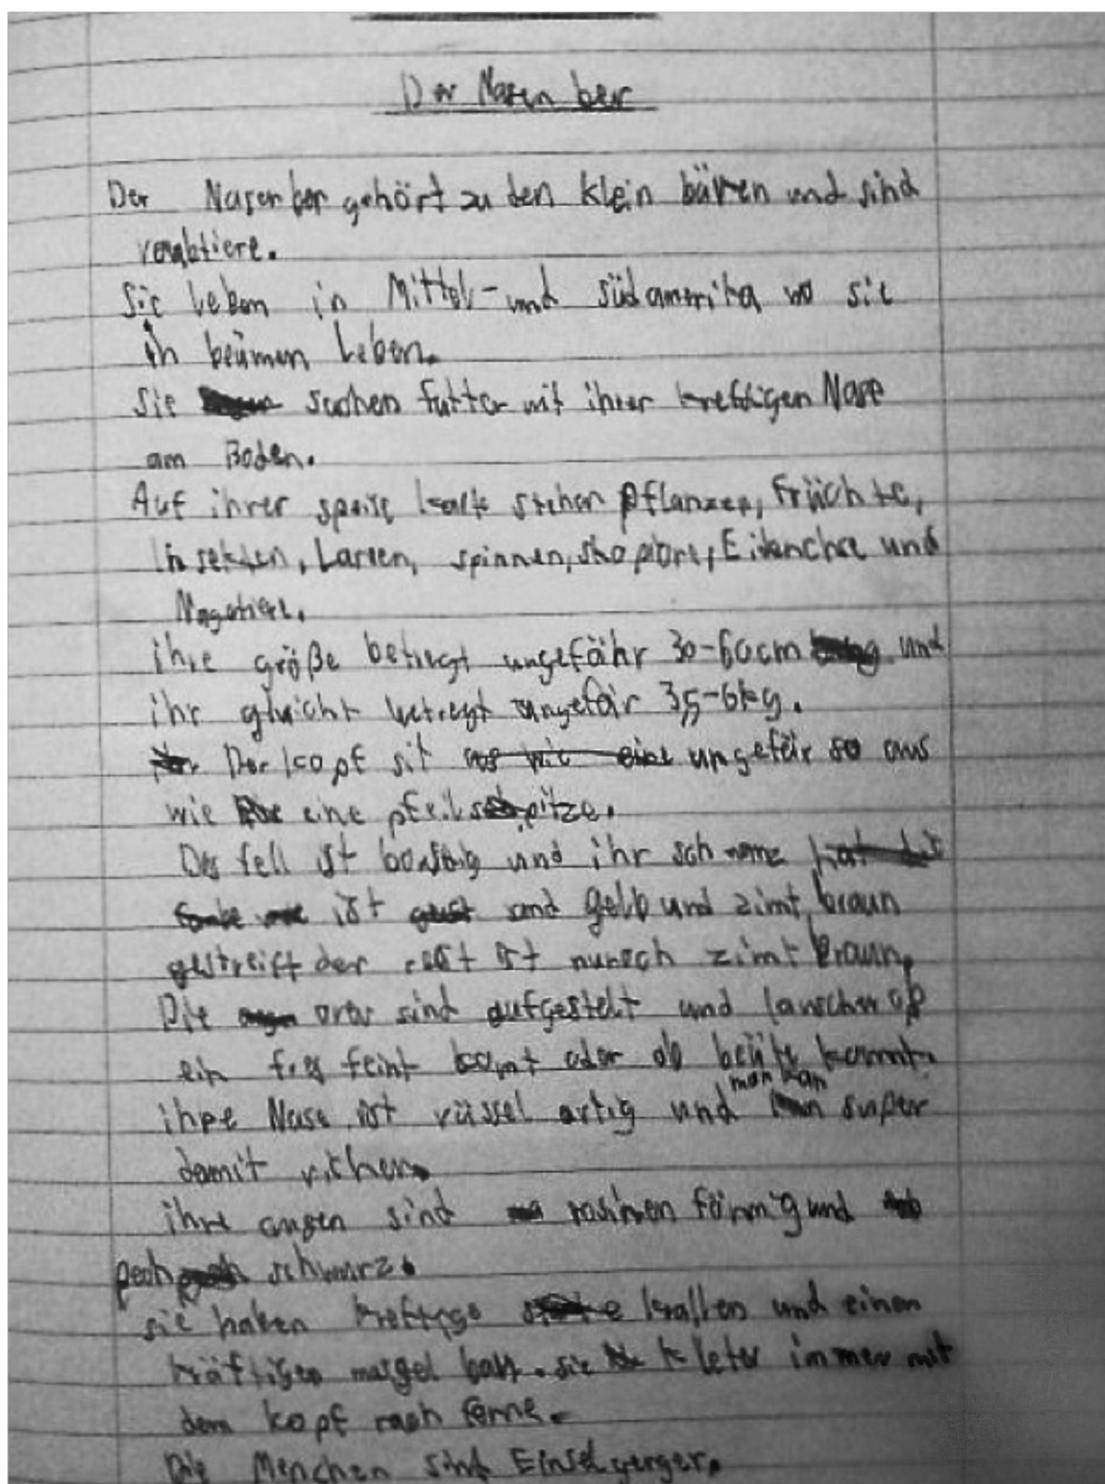 Der Nasen ber
Der Nasenber gehört zu den klein bären und sind
raubtiere.
Sie leben in Mittel-und südamerika wo sie
in beümen Leben.
Sie suchen futter mit ihrer kreftigen Nase
am Boden.
Auf ihrer speise karte stehen pflanzen, Früchte,
Insekten, Larven, spinnen, skopione, Eidenchse und
Nagetiere.
ihre größe betregt ungefähr 30-60cm und
ihr gwicht betregt ungefär 3,5-6kg.
Der kopf sit ungefär so aus
wie eine pfeilspitze.
Das fell ist und ihr schwanz
ist und gelb und zimt braun
gestreift der rest ist zimt braun.
Die oren sind aufgestelt und lauschen op
ein fres feint komt oder ob beüte kommt.
ihre Nase ist rüssel artig und man kan super
damit richen.
ihre augen sind rosinen förmig und
pech schwarz.
sie haben kreftige krallen und einen
kräftigen . sie kleter immer mit
dem kopf nach forne.
Die Menchen sind Einselgenger.